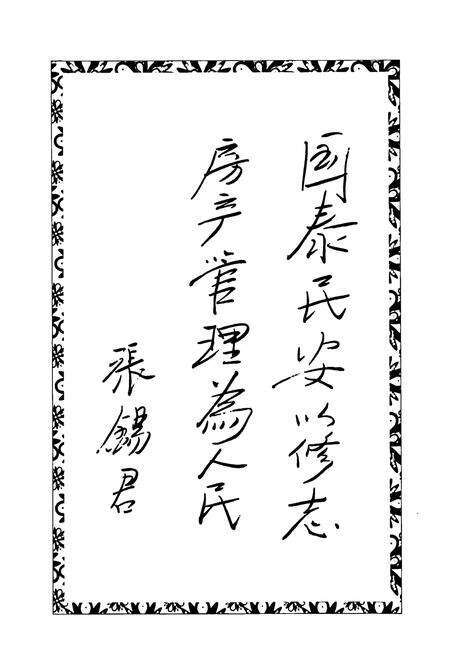 国泰民安以修志
房产管理為人民
張錫君